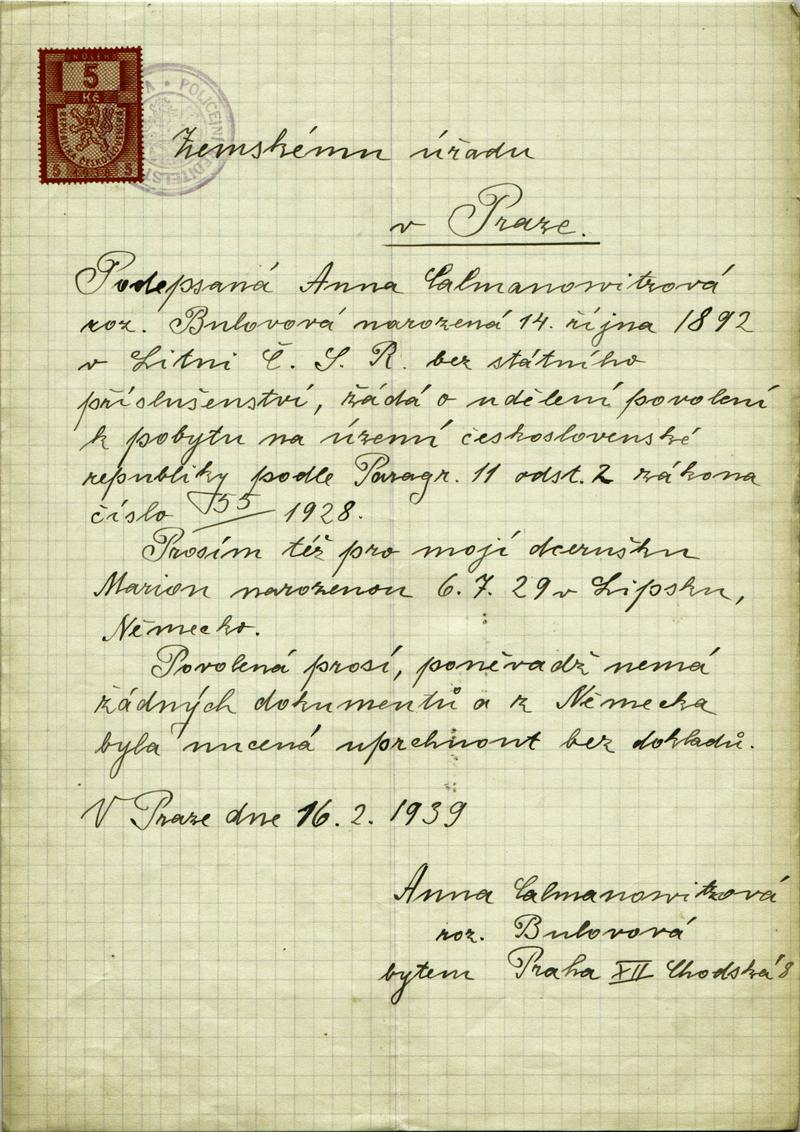 KOLEK
5
Kč
REPUBLIKA ČESKOSLOVENSKÁ
5 5
POLICEJNÍ ŘEDITELST
Zemskému úřadu
v Praze.
Podepsaná Anna Calmanowitzová
roz. Bulovová narozená 14. října 1892
v Litni Č. S. R. bez státního
příslušenství, žádá o udělení povolení
k pobytu na území československé
republiky podle Paragr. 11 odst. 2 zákona
číslo 55/1928.
Prosím též pro mojí dcerušku
Marion narozenou 6. 7. 29 v Lipsku,
Německo.
Povolená prosí, poněvadž nemá
žádných dokumentů a z Německa
byla nucená uprchnout bez dokladů.
V Praze dne 16. 2. 1939
Anna Calmanowitzová
roz. Bulovová
bytem Praha XII Chodská 8